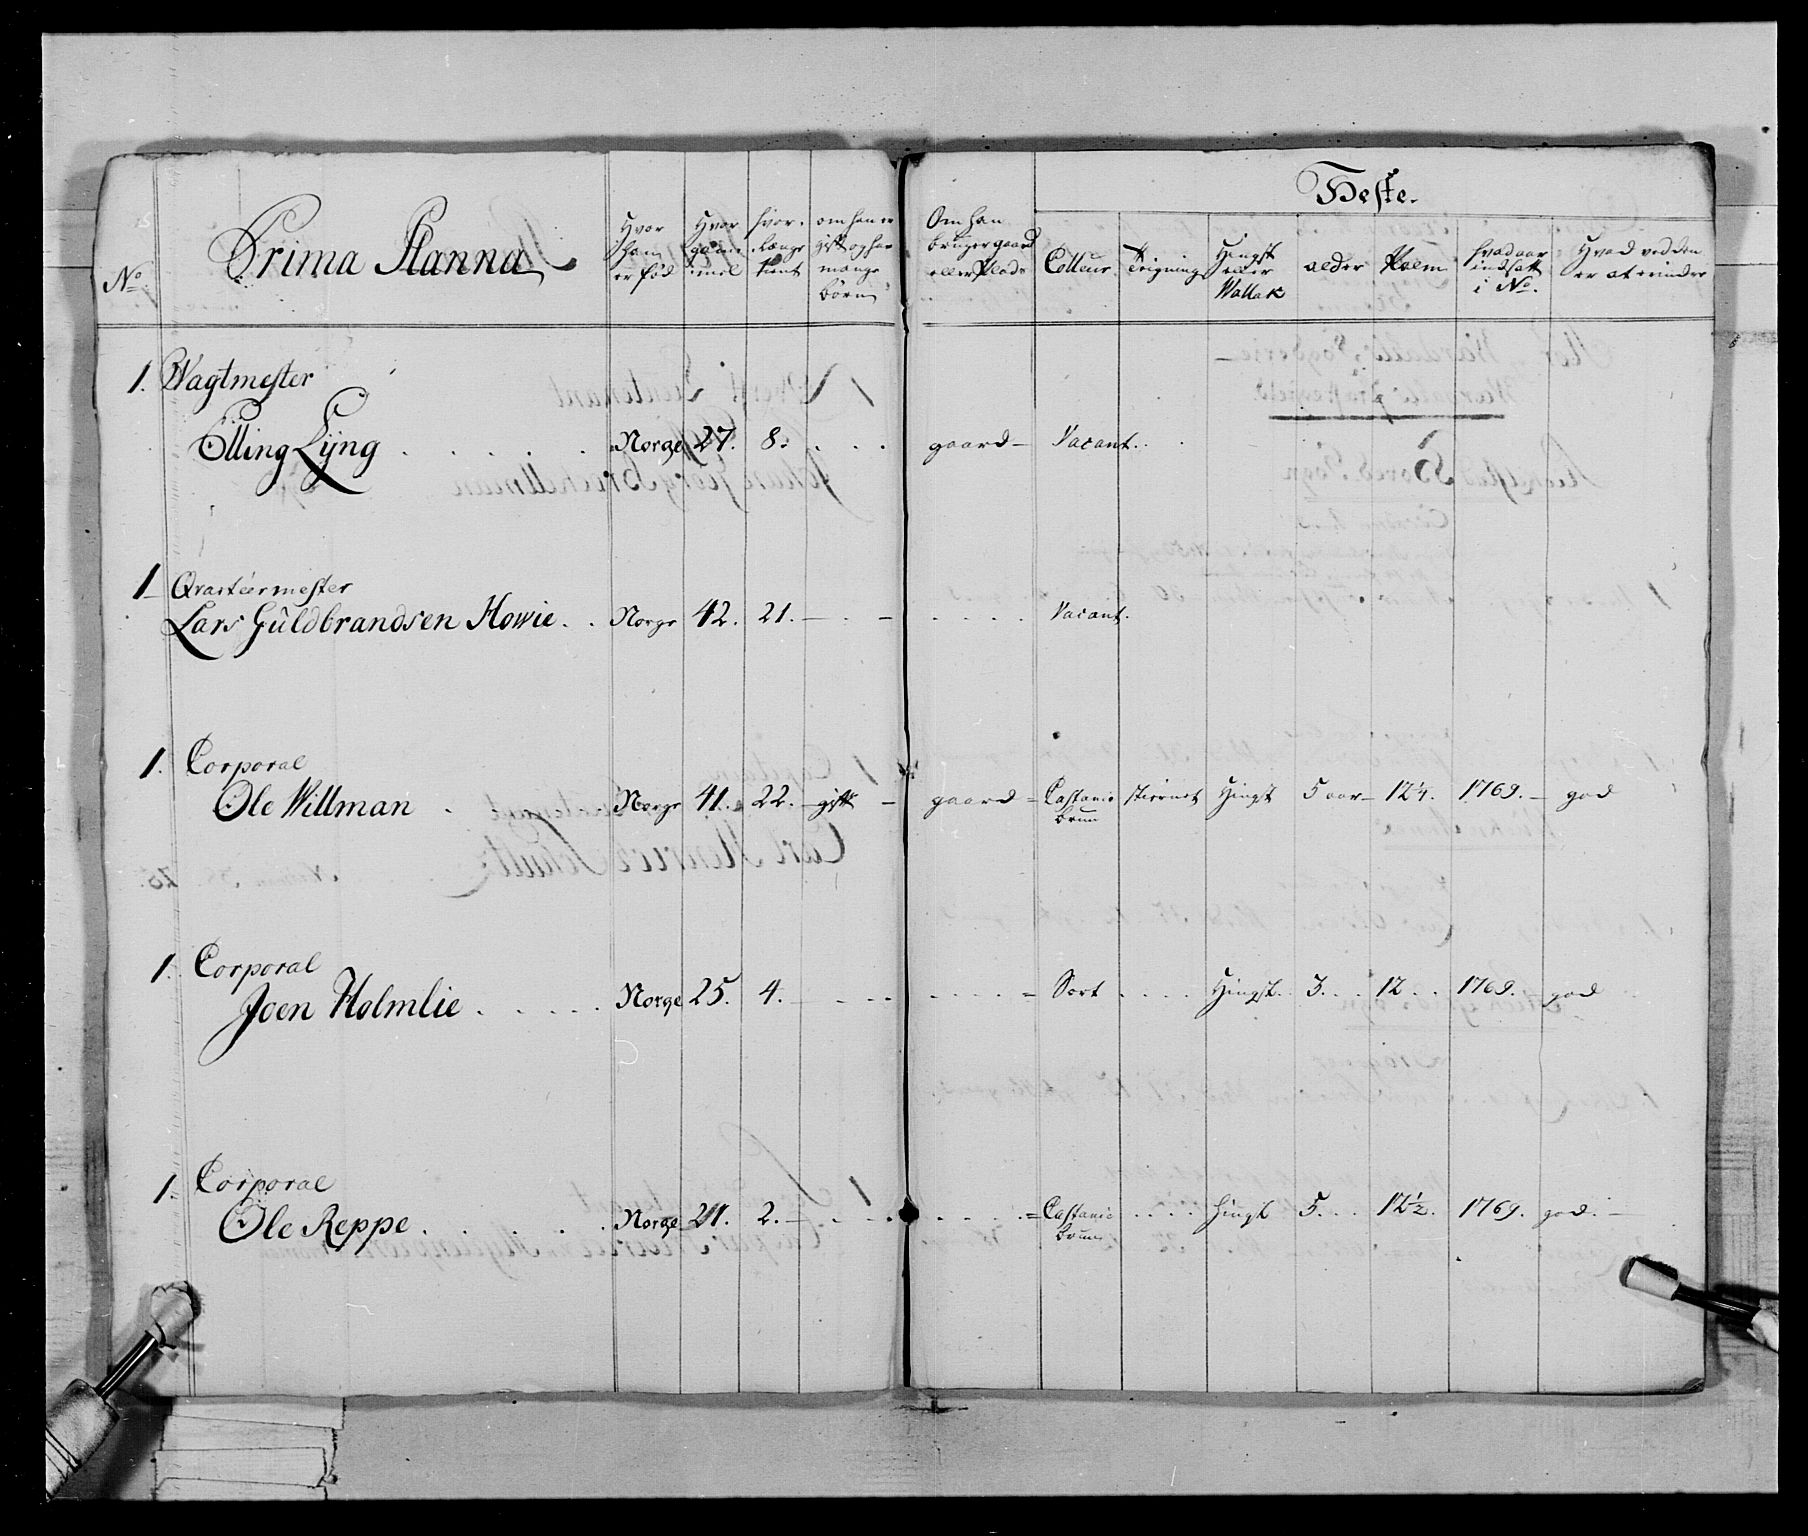 Prima Planna
Heste.
No
Hvor han er fød
Hvor gammel
hvor længe tient
om han er gift og har mange børn
Om han bruger gaard eller Plads
Colleur
Teigning
Hingst eller Wallak
alder
Palm
hvad aar indsatt i No.
Hvad ved den er at erindre
1. Wagtmester
Elling Lÿng . . . . . Norge 27. 8. . . . gaard – Vacant. . .
1 Qvarteermester
Lars Guldbrandsen Howie . . Norge 42. 21. – . – . . . . Vacant.
1. Corporal
Ole Willman . Norge 41. 22. – gift – gaard = Castanie brun stiernet Hingst 5 aar – 12 1/4. 1769. – god
1. Corporal
Joen Holmlie . . . . . Norge 25. 4. – . . . . . . . = Sort . . . . Hingst. 3. . . 12 . . 1769. god
1. Corporal
Ole Reppe . . . . . Norge 21. 2. – . . . . . . . = Castanie brun . . . . hingst 5. . . 12 1/2. 1769. god. –